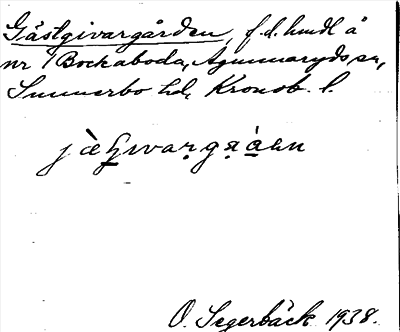 Gästgivargården, f.d. hmdl å
nr 1 Bockaboda, Agunnaryds sn,
Sunnerbo hd, Kronob. l.
O. Segerbäck 1938.